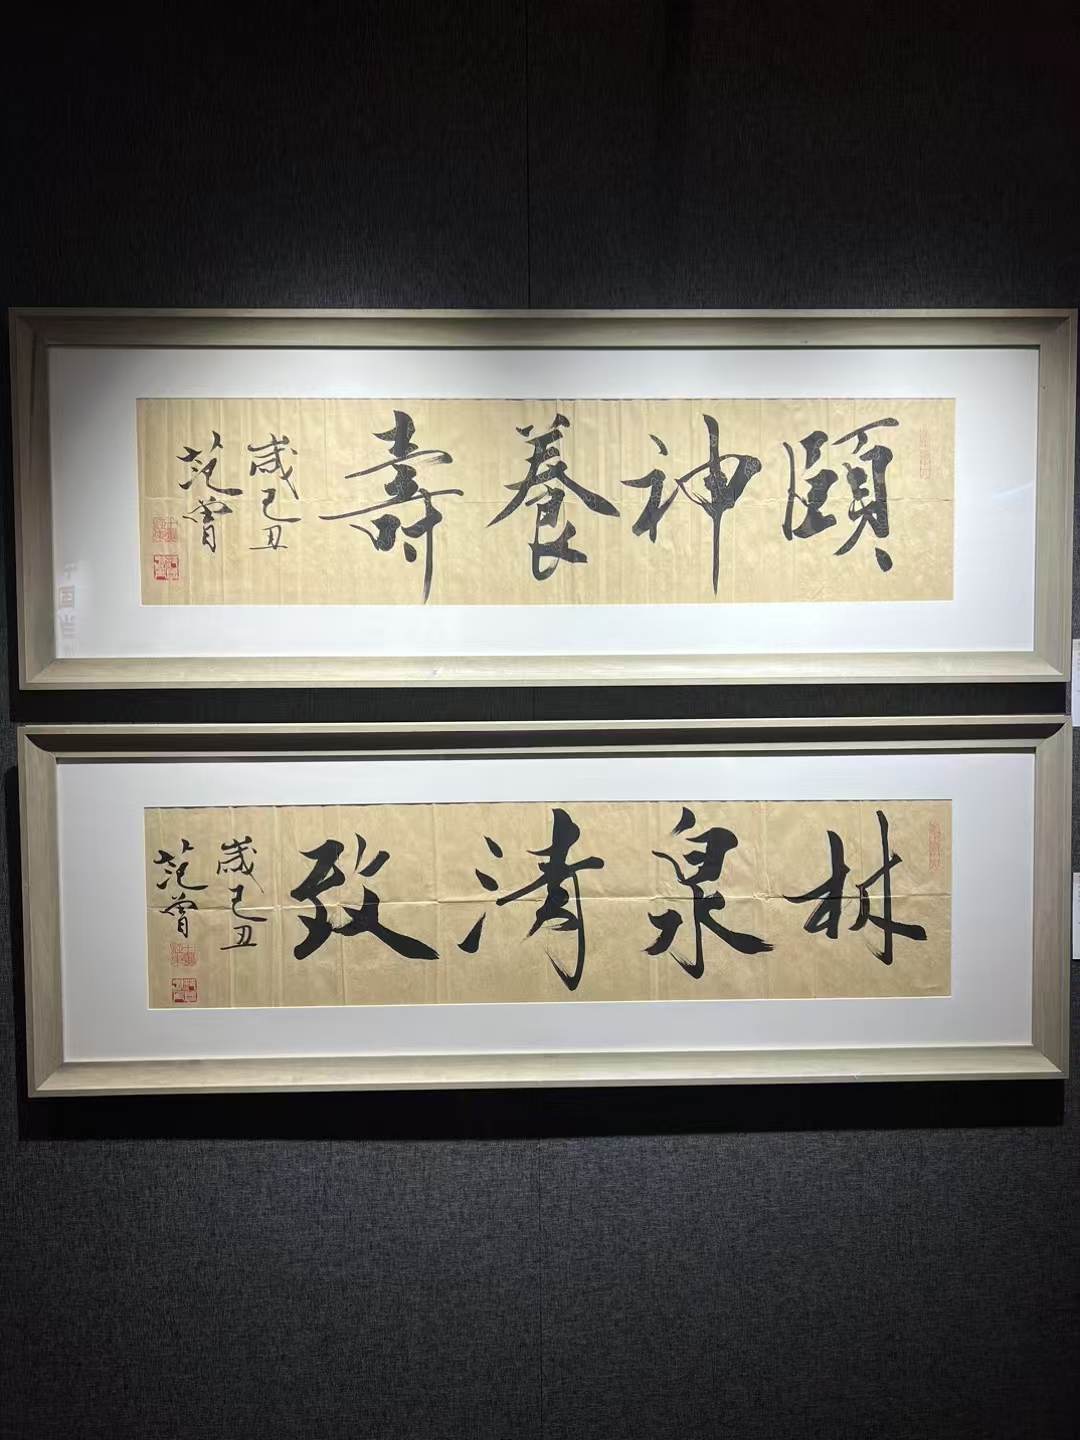 頤神養壽
歲己丑
范曾
林泉清致
歲己丑
范曾